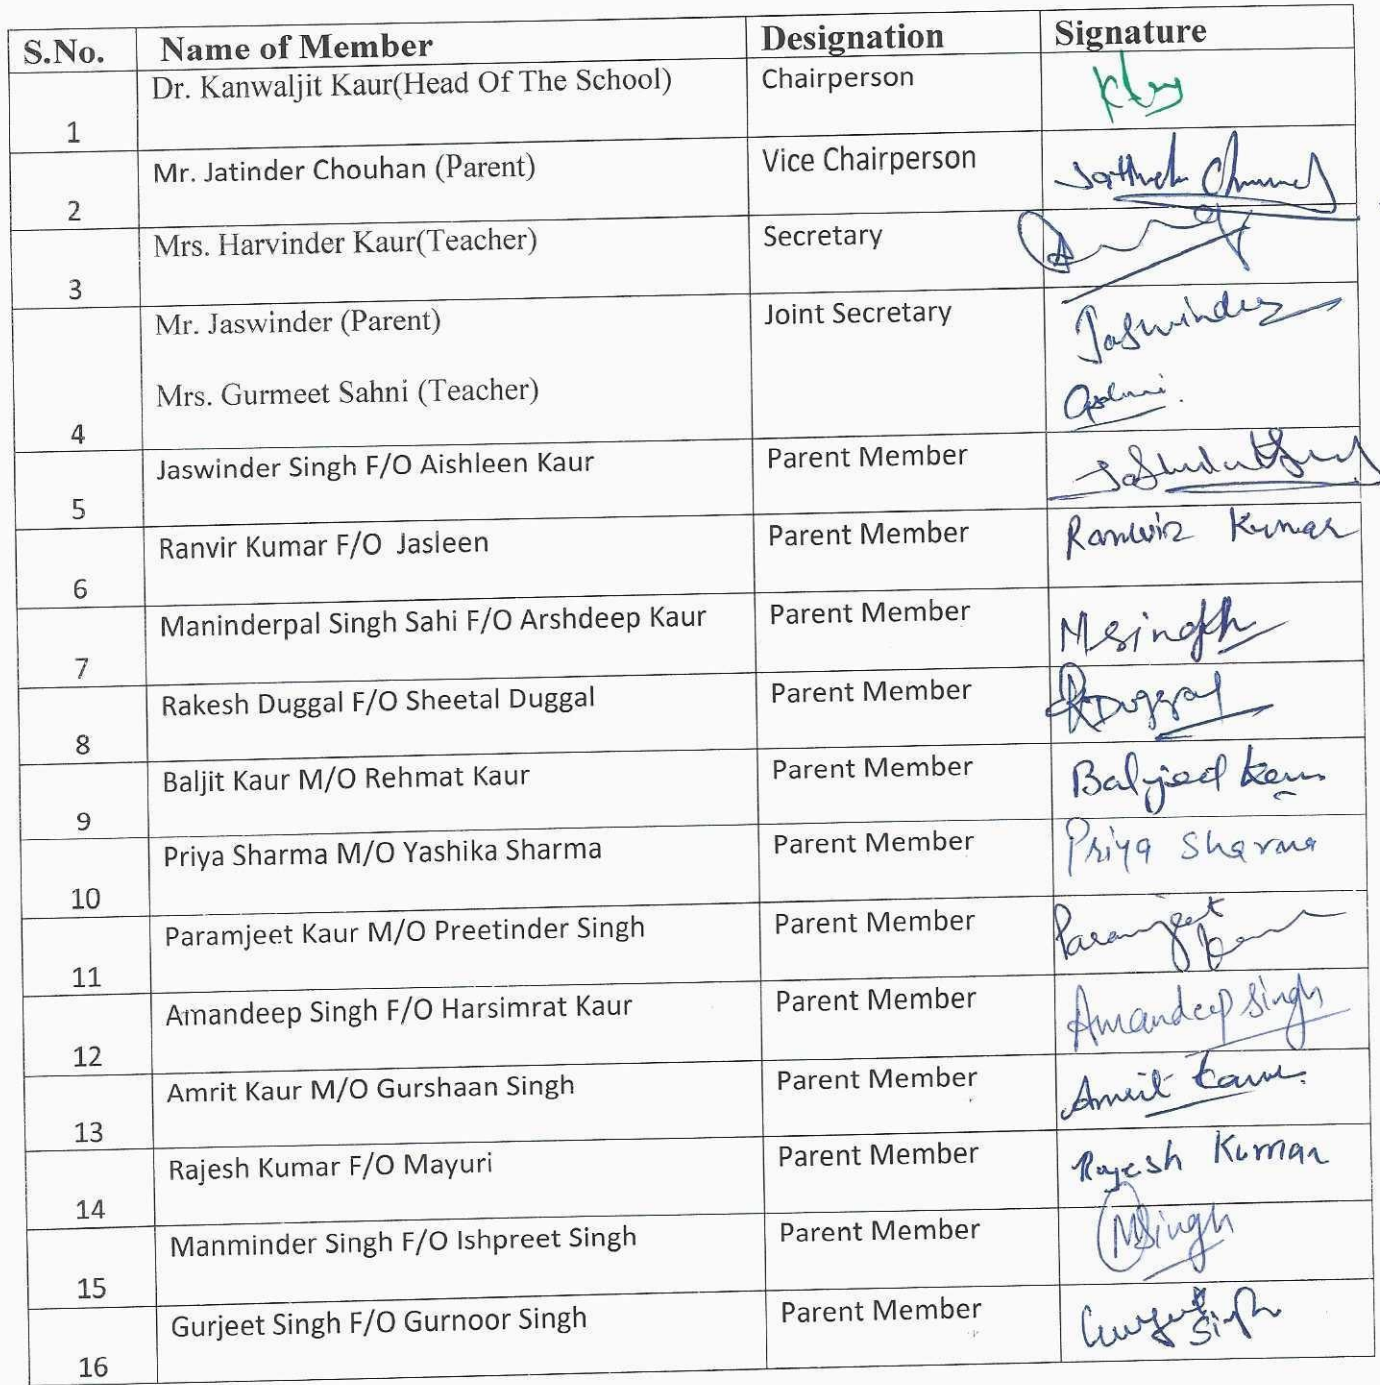 S.No. Name of Member Designation Signature
1 Dr. Kanwaljit Kaur(Head Of The School) Chairperson
2 Mr. Jatinder Chouhan (Parent) Vice Chairperson
3 Mrs. Harvinder Kaur(Teacher) Secretary
4 Mr. Jaswinder (Parent) Joint Secretary Jaswinder
Mrs. Gurmeet Sahni (Teacher)
5 Jaswinder Singh F/O Aishleen Kaur Parent Member
6 Ranvir Kumar F/O Jasleen Parent Member Ranvir Kumar
7 Maninderpal Singh Sahi F/O Arshdeep Kaur Parent Member MSingh
8 Rakesh Duggal F/O Sheetal Duggal Parent Member RDuggal
9 Baljit Kaur M/O Rehmat Kaur Parent Member Baljeet Kaur
10 Priya Sharma M/O Yashika Sharma Parent Member Priya Sharma
11 Paramjeet Kaur M/O Preetinder Singh Parent Member Paramjeet Kaur
12 Amandeep Singh F/O Harsimrat Kaur Parent Member Amandeep Singh
13 Amrit Kaur M/O Gurshaan Singh Parent Member Amrit Kaur
14 Rajesh Kumar F/O Mayuri Parent Member Rajesh Kumar
15 Manminder Singh F/O Ishpreet Singh Parent Member MSingh
16 Gurjeet Singh F/O Gurnoor Singh Parent Member Gurjeet Singh